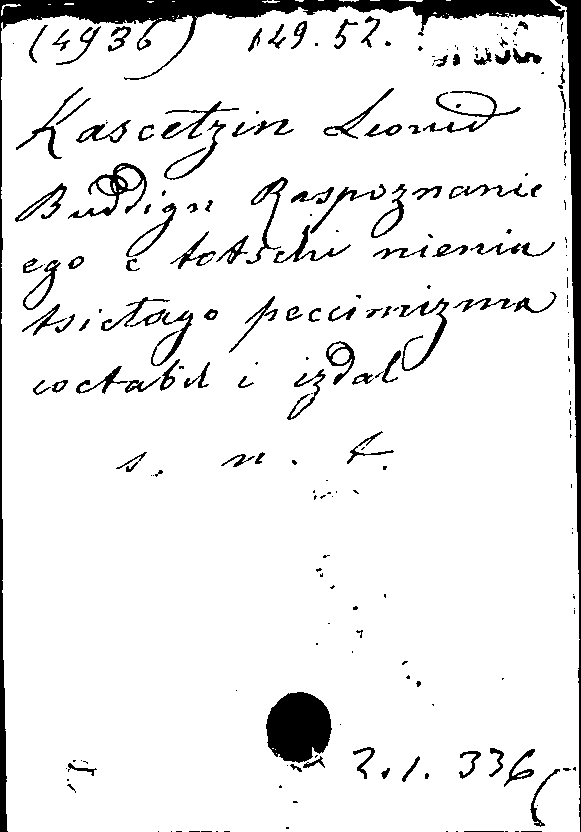 (4936) 149.52.
Kascetzin Leonid
Buddign Raspoznanie
ego c totschi nienia
tsictago peccimizma
coctabil i izdal
s. n. t.
2.1.336